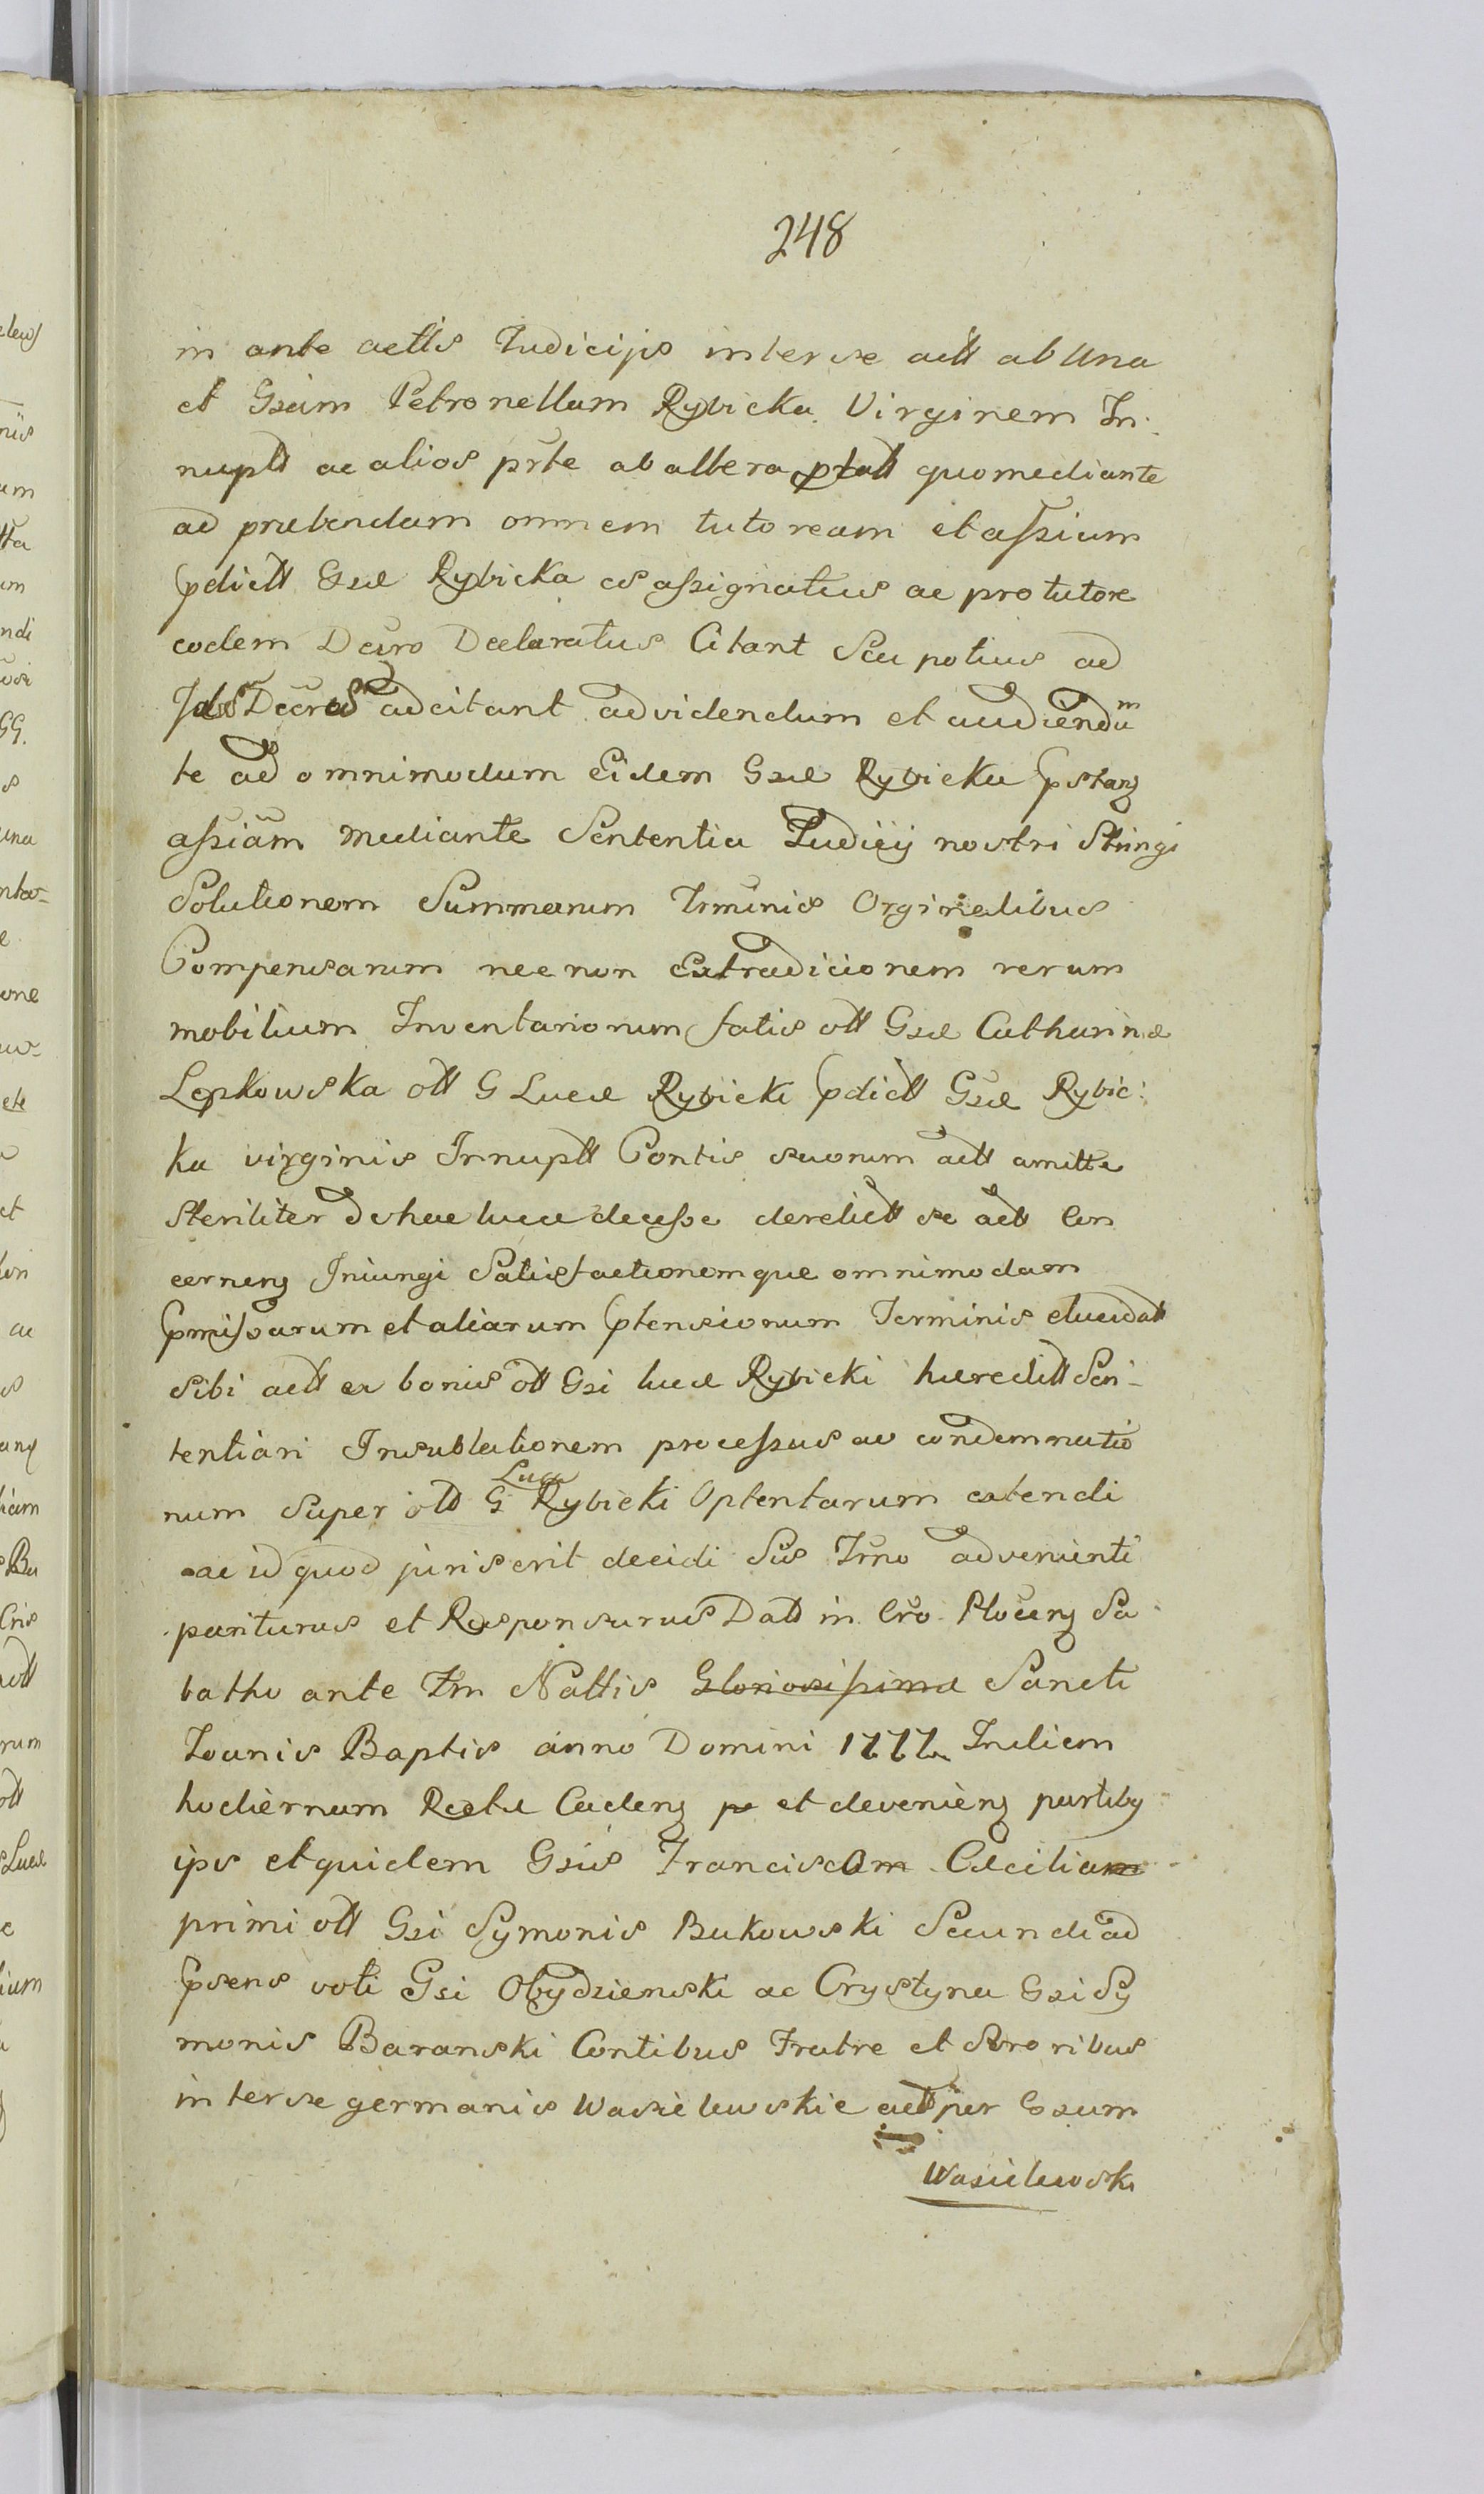 248
in ante actis Judicijs inter se actt ab Una
et Gsam Petronellam Rybicka Virginem In-
nuptt ac alios prte ab altera ptatt quo mediante
ad praebendam omnem tutoream et assiam
pdictt Gsae Rybicka es assignatus ac pro tutore
eodem Decro Declaratus Citant Seu potius ad
Decro adcitant ad videndum et audiendum
te ad omnimodam Eidem Gsae Rybicka pstang
assiam mediante Sententia Judicij nostri Stringi
Solutionem Summarum Trminis Orginalibus
Compensarum nec non Extradicionem rerum
mobilium Inventariorum fatis ott Gsae Catharinae
Lepkowska ott G Lucae Rybicki pdictt Gsae Rybic:
ka virginis Innuptt Contis suorum actt amitte
Steriliter de hac luce decesse derelictt se actt Con
cerneng Iniungi Satisfactionemque omnimodam
pmissarum et aliarum ptensionum Terminis elucidatt
sibi actt ex bonis ott Gsi Lucae Rybicki haereditt Sen-
tentiari Insublationem processus ac condemnatio
num Super ott G Luca Rybicki Optentarum extendi
ac id quod juris erit decidi Sis Trno advenienti
pariturus et Responsurus Datt in Cro Ploceng Sa
batho ante Fm Nattis Gloriosissimae Sancti
Joanis Baptis anno Domini 1777 In diem
hodiernum Recte Cadeng pr et devenieng partibg
ipis et quidem Gsis Franciscam Caeciliam
primi ott Gsi Symonis Bukowski Secundi ad
psens voti Gsi Obydzienski ac Crystyna Gsi Sy
monis Baranski Contibus Fratre et Sororibus
inter se germanis Wasielewskie actt per Gsum
Wasielewski